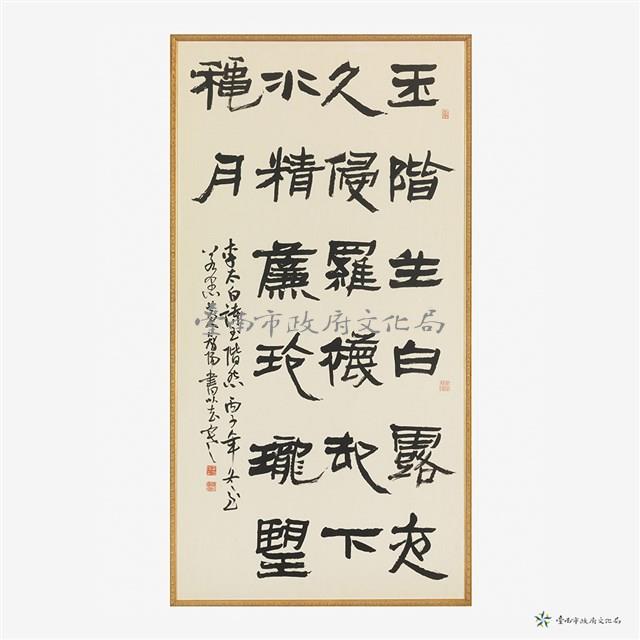 玉階生白露夜
久侵羅襪却下
水精簾玲瓏望
龝月
李太白詩玉階怨 丙子年冬至
書
臺南市政府文化局
臺南市政府文化局